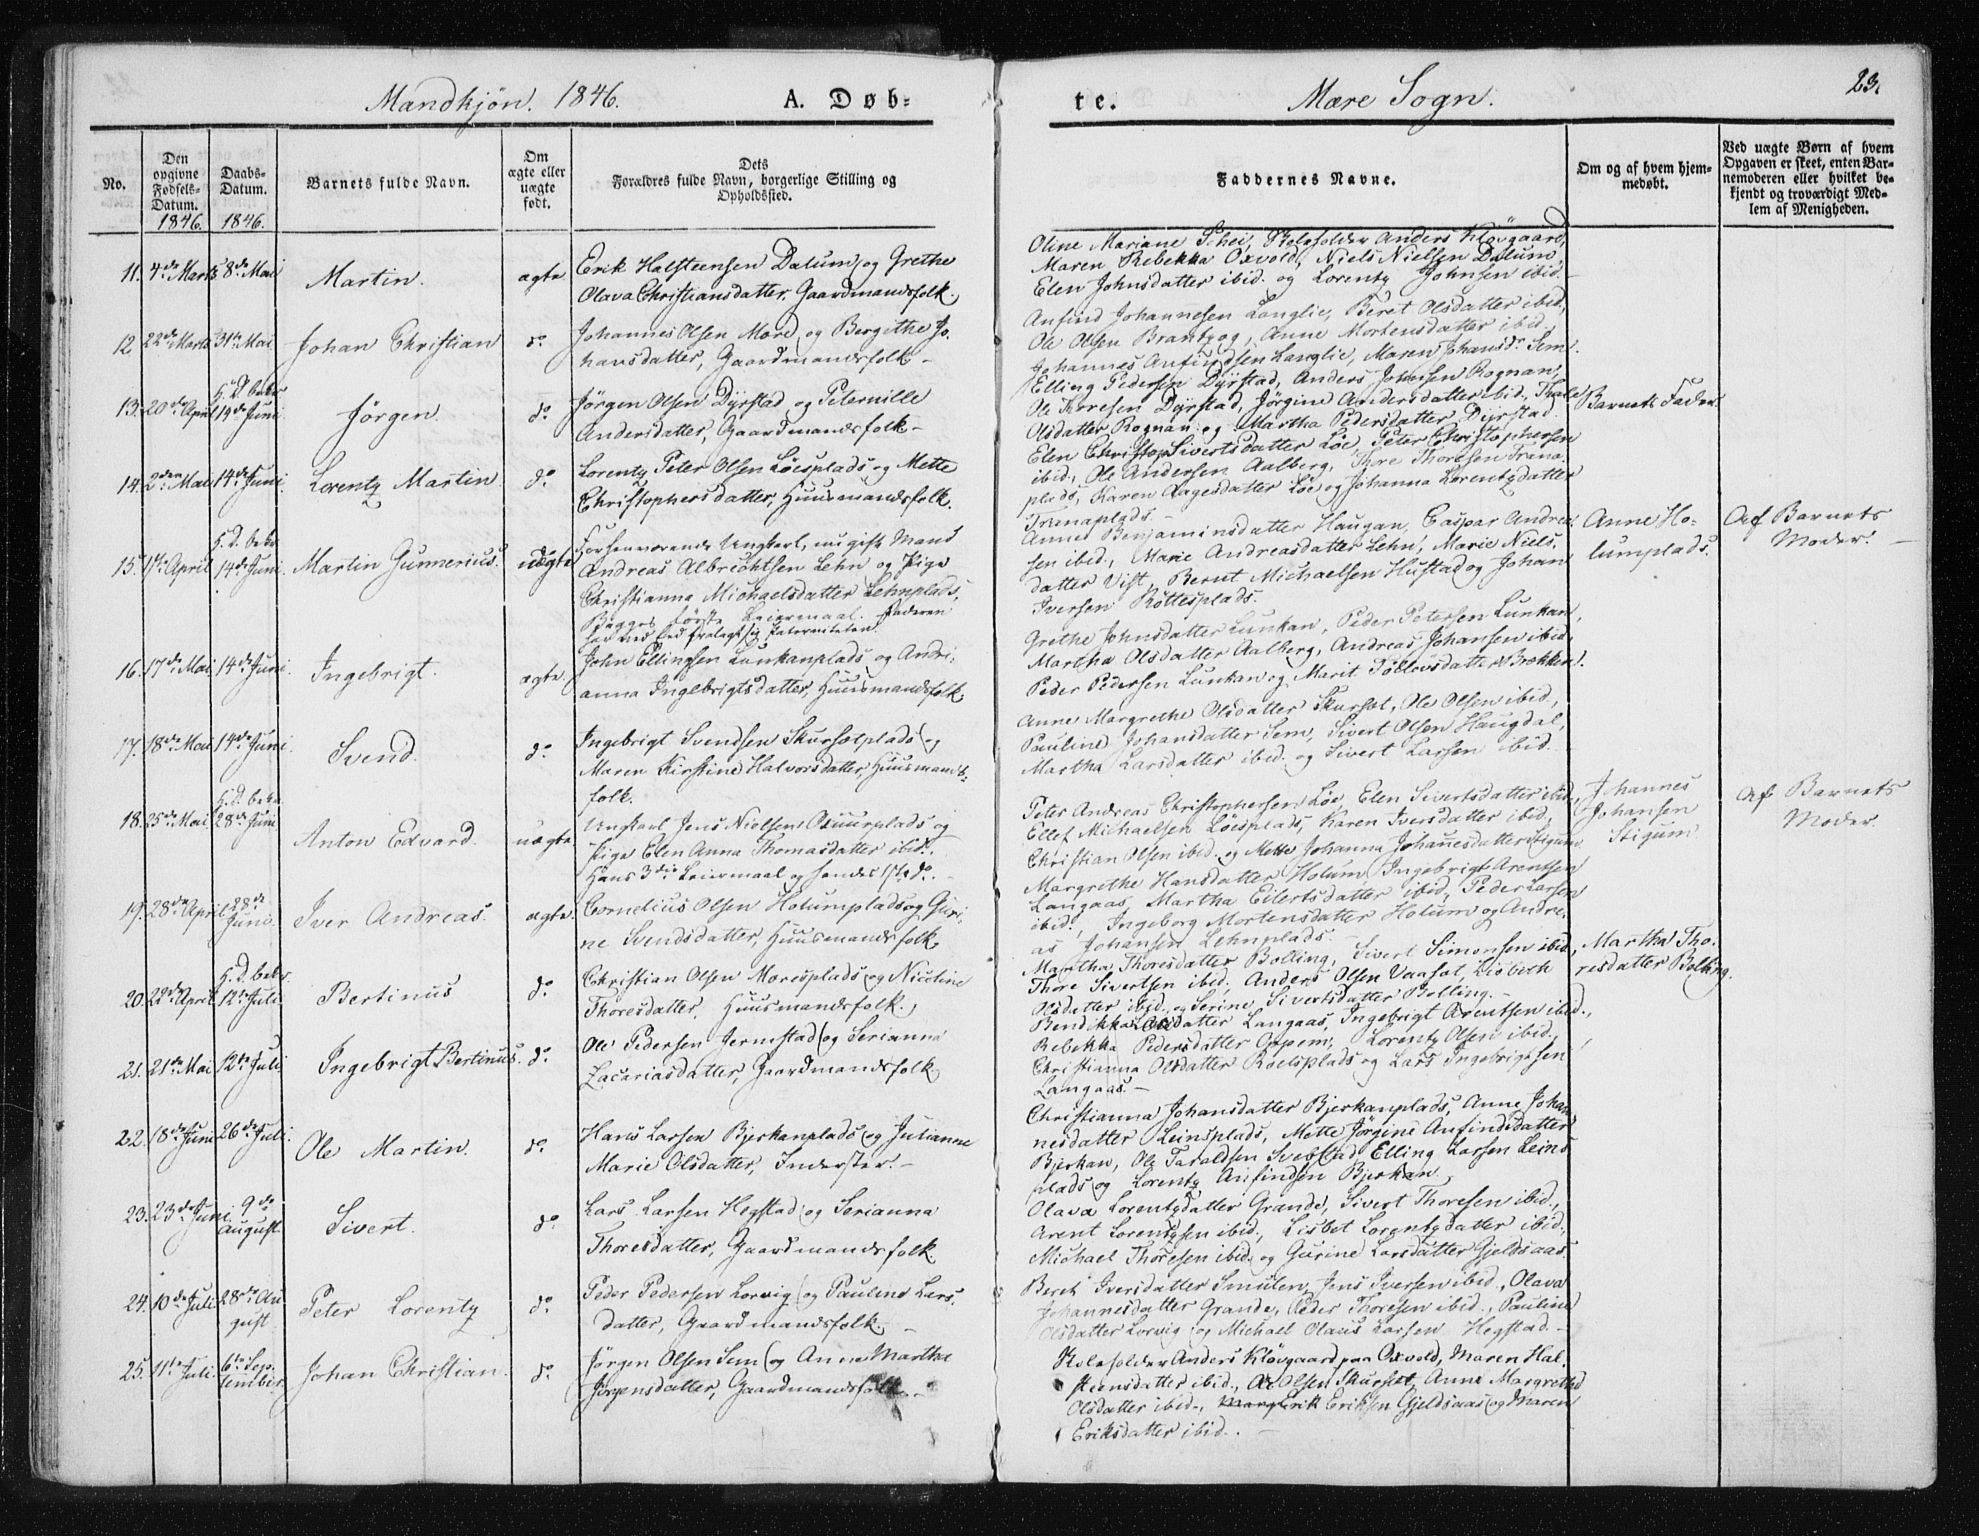 Mandkjön. 1846.
A. Døb-
te.
Mære Sogn.
23.
No.
Den opgivne Fødsels-Datum. 1846.
Daabs-Datum. 1846.
Barnets fulde Navn.
Om ægte eller uægte født.
Dets Forældres fulde Navn, borgerlige Stilling og Opholdssted.
Faddernes Navne.
Om og af hvem hjem-medøbt.
Ved uægte Børn af hvem Opgaven er skeet, enten Bar-nemoderen eller hvilket be-kjendt og troværdigt Med-lem af Menigheden.
11. 4de Marts 8de Mai
Martin.
ægte
Erik Halsteensen Dalum og Grethe
Olava Christiansdatter, Gaardmandsfolk.
Oline Mariane Schei, Skoleholder Anders Klövgaard,
Maren Rebekka Oxvold, Niels Nielsen Dalum,
Elen Johnsdatter ibid. og Lorentz Johnsen ibid.
12. 22de Marts 31te Mai
Johan Christian
do
Johannes Olsen Mære og Bergithe Jo-
hansdatter, Gaardmandsfolk -
Anfind Johannesen Langlie, Beret Olsdatter ibid,
Ole Olsen Brandtzog, Anne Mortensdatter ibid,
Johannes Anfindsen Langlie, Maren Johansdr Sem.
13. 20de April H. D. bekr. 14de Juni
Jörgen.
do
Jörgen Olsen Dyrstad og Peternille
Andersdatter, Gaardmandsfolk -
Elling Pedersen Dyrstad, Anders Johnsen Rognan,
Ole Toresen Dyrstad, Jørgine Andersdatter ibid, Thale
Olsdatter Rognan og Martha Pedersdatter Dyrstad.
Barnets Fader.
14. 2den Mai 14de Juni.
Lorentz Martin
do
Lorentz Peter Olsen Löesplads og Mette
Christophersdatter, Huusmandsfolk.
Elen Sivertsdatter Löe, Peter Christophersen
ibid., Ole Andersen Aalberg, Thore Thoresen Trana-
plads, Karen Aagesdatter Löe og Johanna Lorentzdatter
Tranaplads -
15. April H. D. bekr. 14de Juni.
Martin Gunnerius.
uægte
Forhenværende Ungkarl, nu gift Mand
Andreas Albrichtsen Lehn og Pige
Christianna Michaelsdatter Lehnplads,
Begges förste Leiermaal. Faderen
har ved Ed fralagt sig Paterniteten.
Anne Benjaminsdatter Haugan, Caspar Andrea-
sen ibid., Marie Andreasdatter Lehn, Marie Niels-
datter Vist, Bernt Michaelsen Hustad og Johan
Iversen Röttesplads.
Anne Ho-
lumplads.
Af Barnets
Moder. -
16. 17de Mai 14de Juni.
Ingebrigt.
ægte.
John Ellingsen Lunkanplads og Andri-
anna Ingebrigtsdatter, Huusmandsfolk
Grethe Johnsdatter Lunkan, Peder Petersen Lunkan,
Martha Olsdatter Aalberg, Andreas Johansen ibid,
Peder Pedersen Lunkan og Marit Tollevsdatter Brekken.
17. 18de Mai 14de Juni
Svend.
do
Ingebrigt Svendsen Skursetplads og
Maren Kirstine Halvorsdatter, Huusmands-
folk.
Anne Margrethe Olsdatter Skurset, Ole Olsen ibid,
Pauline Johansdatter Sem, Sivert Olsen Haugdal,
Martha Larsdatter ibid. og Sivert Larsen ibid.
18. 25de Mai H. D. bekr. 28de Juni
Anton Edvard.
uægte
Ungkarl Jens Nielsen plads og
Pige Elen Anna Thomasdatter ibid.
Hans 3die Leiermaal og hendes 1ste do. -
Peter Andreas Christophersen Löe, Elen Sivertsdatter ibid,
Ellef Michaelsen Löesplads, Karen Iversdatter ibid,
Christian Olsen ibid. og Mette Johanna Johannesdatter Stigum
Johannes
Johansen
Stigum.
Af Barnets
Moder.
19. 28de April 28de Juni.
Iver Andreas.
ægte.
Cornelius Olsen Holumplads og Guri-
ne Svendsdatter, Huusmandsfolk
Margrethe Hansdatter Holum, Ingebrigt Arentsen
Langaas, Martha Eilertsdatter ibid, Peder Larsen
ibid., Ingeborg Mortensdatter Holum og Andre-
as Johansen Lehnplads.
20. 22de April H. D. bekr. 12te Juli
Bertinus
do
Christian Olsen Mæresplads og Nicoline
Thoresdatter, Huusmandsfolk.
Martha Thoresdatter Bolling, Sivert Simonsen ibid,
Thore Sivertsen ibid, Anders Olsen Vaaset, Lisbeth
Olsdatter ibid. og Serine Sivertsdatter Bolling. -
Martha Tho-
resdatter Bolling.
21. 21de Mai 12te Juli.
Ingebrigt Bertinus.
do
Ole Pedersen Jernstad og Serianna
Zacariasdatter, Gaardmandsfolk
Bendikka datter Langaas, Ingebrigt Arentsen ibid.,
Rebekka Pedersdatter Opem, Lorentz Olsen ibid.,
Christianna Olsdatter Roelsplads og Lars Ingebrigtsen
Langaas. -
22. 18de Juni 26de Juli.
Ole Martin.
do
Hans Larsen Bjerkanplads og Julianne
Marie Olsdatter, Inderster. -
Christianna Johansdatter Bjerkanplads, Anne Johan-
nesdatter Leinsplads, Mette Jörgine Anfindsdatter
Bjerkan, Ole Taraldsen Svebstad, Elling Larsen Leins
plads og Lorentz Anfindsen Bjerkan
23. 23de Juni 9de August.
Sivert.
do
Lars Larsen Hegstad og Serianna
Thoresdatter, Gaardmandsfolk.
Olava Lorentzdatter Grande, Sivert Thoresen ibid.,
Arent Lorentzsen ibid., Lisbet Lorentzdatter ibid,
Michael Thoresen ibid. og Gurine Larsdatter Gjeldsaas
24. 10de Juli 28de Au-gust.
Peter Lorentz
do
Peder Pedersen Lorvig og Pauline Lars-
datter, Gaardmandsfolk. -
Beret Iversdatter Smulen, Jens Iversen ibid., Olava
Johannesdatter Grande, Peder Thoresen ibid., Pauline
Olsdatter Lorvig og Michael Olaus Larsen Hegstad. -
25. 11te Juli. 6te Sep-tember
Johan Christian.
do
Jörgen Olsen Sem og Anne Marthe
Jörgensdatter, Gaardmandsfolk -
Skoleholder Anders Klövgaard paa Oxvold, Maren Hal-
steensdatter ibid., Ole Olsen Skurset, Anne Margrethe
Olsdatter ibid., Erik Eriksen Gjeldsaas og Maren
Eriksdatter ibid. -